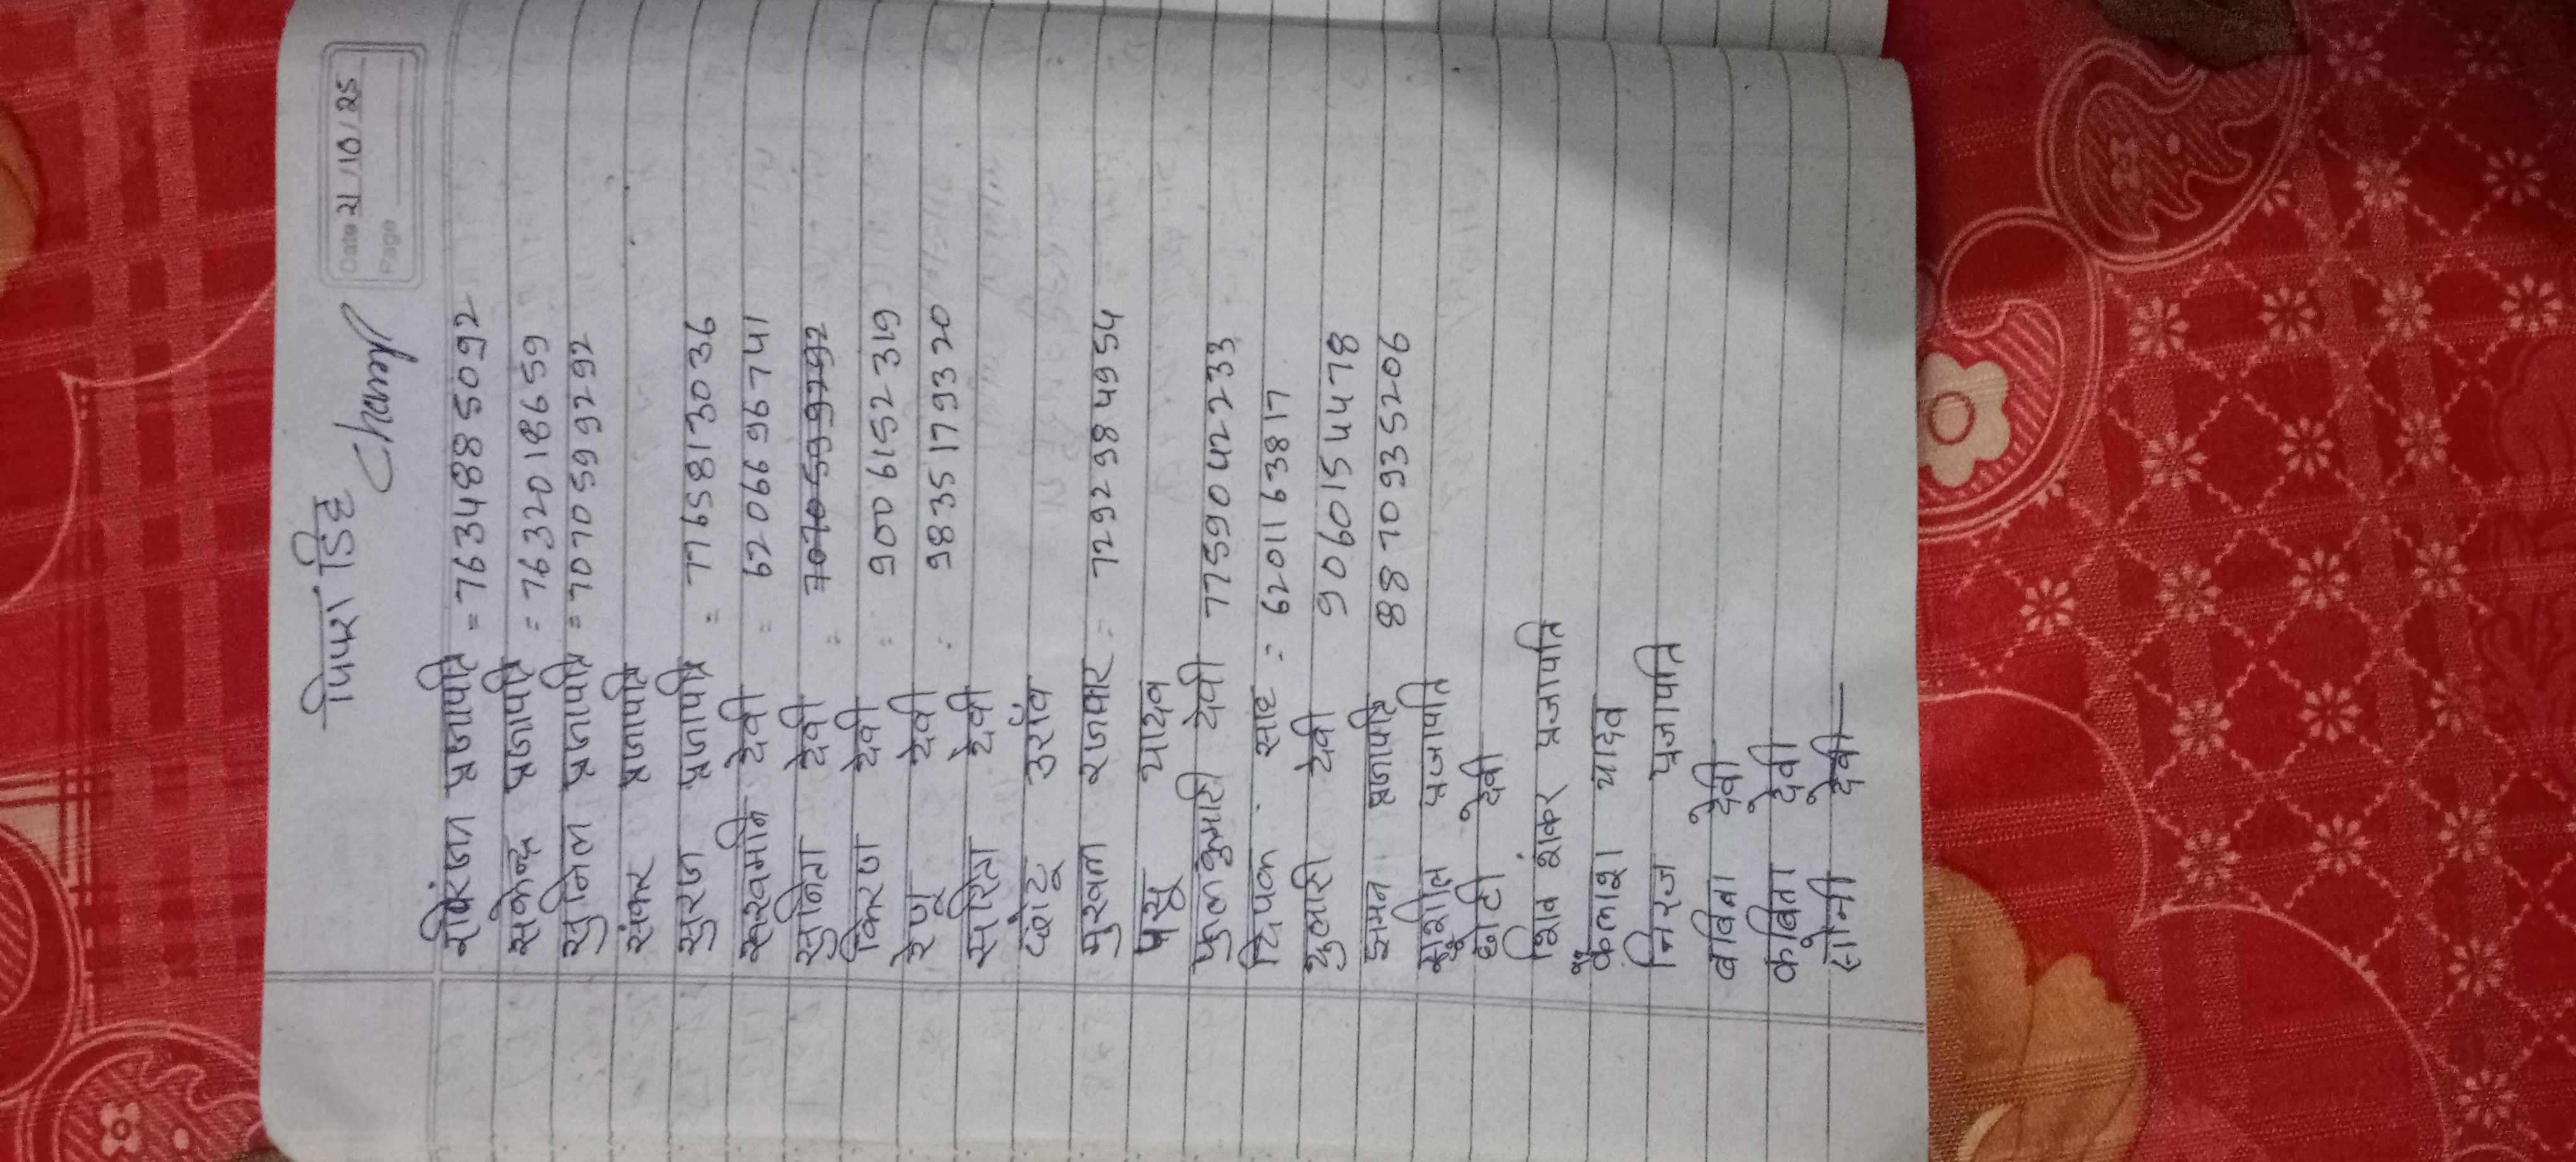 पिपरा डिह
Date 21/10/25
Page
प्रजापति = 7634885092
सकेन्द्र प्रजापति = 7632018659
सुनिल प्रजापति = 7070599292
संकर प्रजापति
सुरज प्रजापति = 7765813036
देवी = 6206696741
सुनिता देवी = 7070599292
किरण देवी = 9006152319
रेणू देवी = 9835179320
सरिता देवी
छोटू उराँव
रजवार = 7292984954
यादव
फुलकुमारी देवी 7759042233
दिपक साह = 6201163817
दुलारी देवी 9060154478
प्रजापति 8870935206
सुशील प्रजापति
छोटी देवी
शिव शंकर प्रजापति
कैलाश यादव
निरज प्रजापति
बबिता देवी
कबिता देवी
सोनी देवी